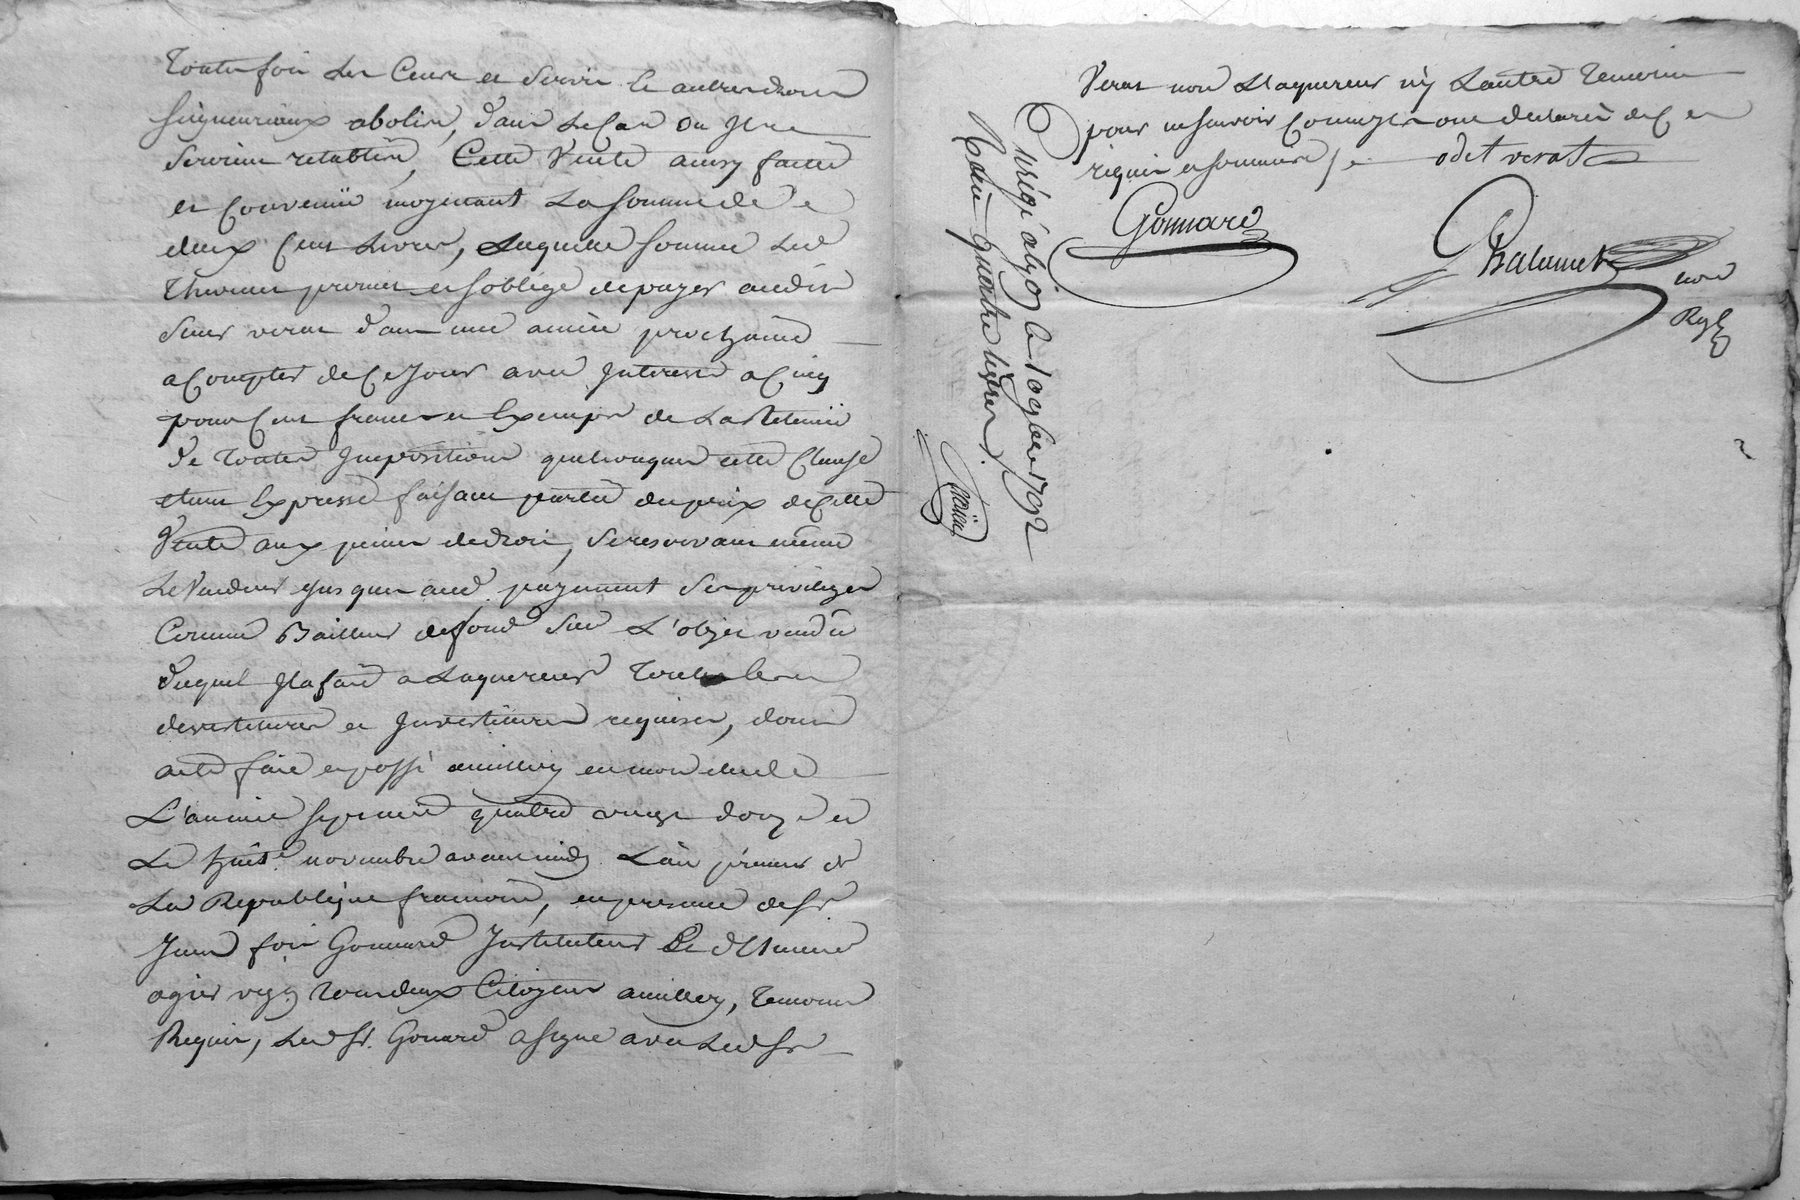 Toutes fois les Cens et Servis et autres droits
seigneuriaux abolis, dans le Cas ou Ils ne
seroient retablis, Cette Vente ainsy faitte
et Convenüe moyenant La somme de
deux Cent Livres, Laquelle somme led
promet et soblige de payer audit
sieur verat dans une année prochaine
a Compter de Ce Jour avec Interest a Cinq
pour Cent francs et Exempts de La Retenüe
de toutes Impositions quelconques cette Clause
etant Expresse faisant partie du prix de Cette
Vente aux peines de droit, se reservant même
Le Vendeur jusques aud. payement ses privileges
Comme Bailleur de fond sur L'objet vendû
duquel Il a fait a Laquereur toutes les
devestitures et Investitures requises, dont
acte fait et passé a millery en mon etude
L'année sept cent quatre vingt douze et
Le huit novembre avant midy. L'an premier de
La Republique françoise, en presence de Sr
Jean fois Gonnard Instituteur et de Etienne
ogier tous deux Citoyens a millery, temoins
Requis, Led Sr. Gonard a signé avec Led Sr
Verat non L'aquereur ny L'autre temoin
pour ne scavoir Comme ils ont declaré de Ce
requis et sommés /. odet verat
Gonnard
Balamet
not
Regle
Enregé a lyon le 10 9bre 1792
Reçu quatre livres